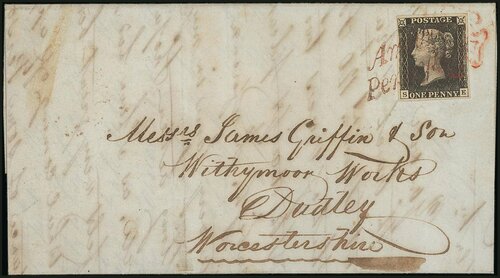 POSTAGE
S ONE PENNY E
Messrs James Griffin & Son
Withymoor Works
Dudley
Worcestershire